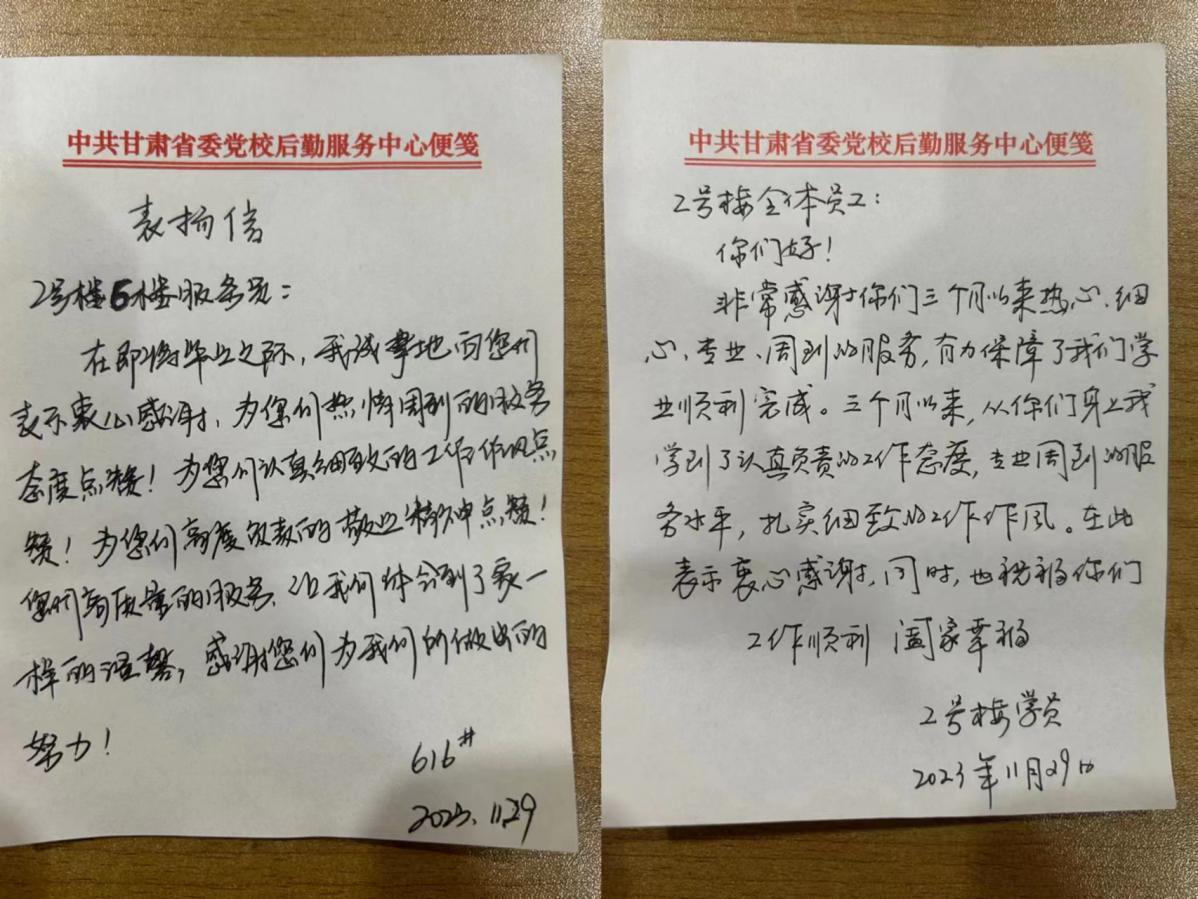 中共甘肃省委党校后勤服务中心便笺
表扬信
2号楼6楼服务员：
在即将毕业之际，我诚挚地向您们
表示衷心感谢，为您们热情周到的服务
态度点赞！为您们认真细致的工作作风点
赞！为您们高度负责的敬业精神点赞！
您们高质量的服务，让我们体会到了家一
样的温馨，感谢您们为我们所做出的
努力！
616#
2023.11.29
中共甘肃省委党校后勤服务中心便笺
2号楼全体员工：
你们好！
非常感谢你们三个月以来热心、细
心、专业、周到的服务，有力保障了我们学
业顺利完成。三个月以来，从你们身上我
学到了认真负责的工作态度，专业周到的服
务水平，扎实细致的工作作风。在此
表示衷心感谢，同时，也祝福你们
工作顺利 阖家幸福
2号楼学员
2023年11月29日